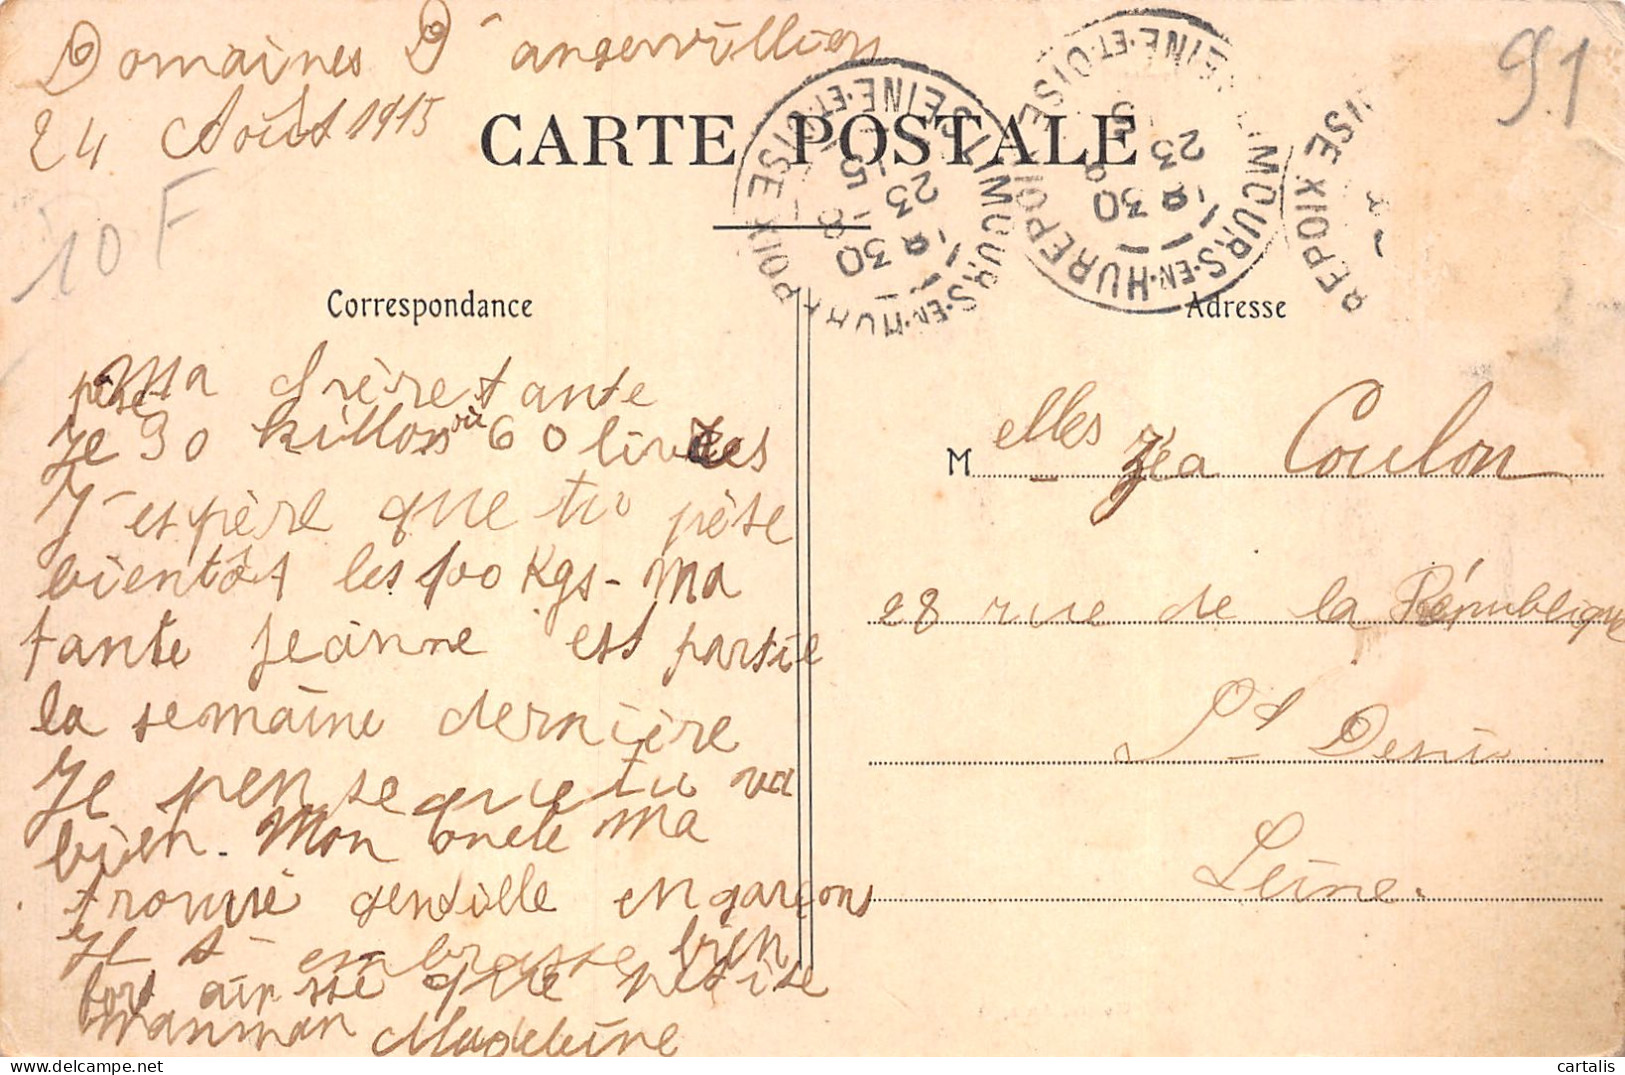 Domaines D'angervillier
24 Août 1915
91
10 F
CARTE POSTALE
ST MOURS-EN-HUREPOIX SEINE-ET-OISE
18 30
23 -8
15
MOURS-EN-HUREPOIX SEINE-ET-OISE
18 30
23 8
5
REPOIX OISE
Correspondance
Adresse
Ma chrère tante
pèse
Je 30 killos où 60 livres
J'espère que tu pèse
bientôt les 100 Kgs - Ma
tante Jeanne est partie
la semaine dernière
Je pense que tu va
bien. Mon Oncle Ma
trouvé gentille en garçons
Je t'embrasse bien
fort ainssé que petite
manman Madeleine
M elles Zéa Coulon
28 rue de la République
St Denis
Seine.
cartalis